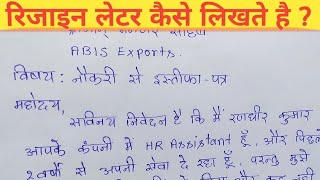 रिजाइन लेटर कैसे लिखते है ?
ABIS Exports.
विषय: नौकरी से इस्तीफा-पत्र
महोदय,
सविनय निवेदन है कि मैं रणधीर कुमार
आपके कंपनी में HR Assistant हूँ, और पिछले
2 वर्षो से अपनी सेवा दे रहा हूँ, परन्तु मुझे